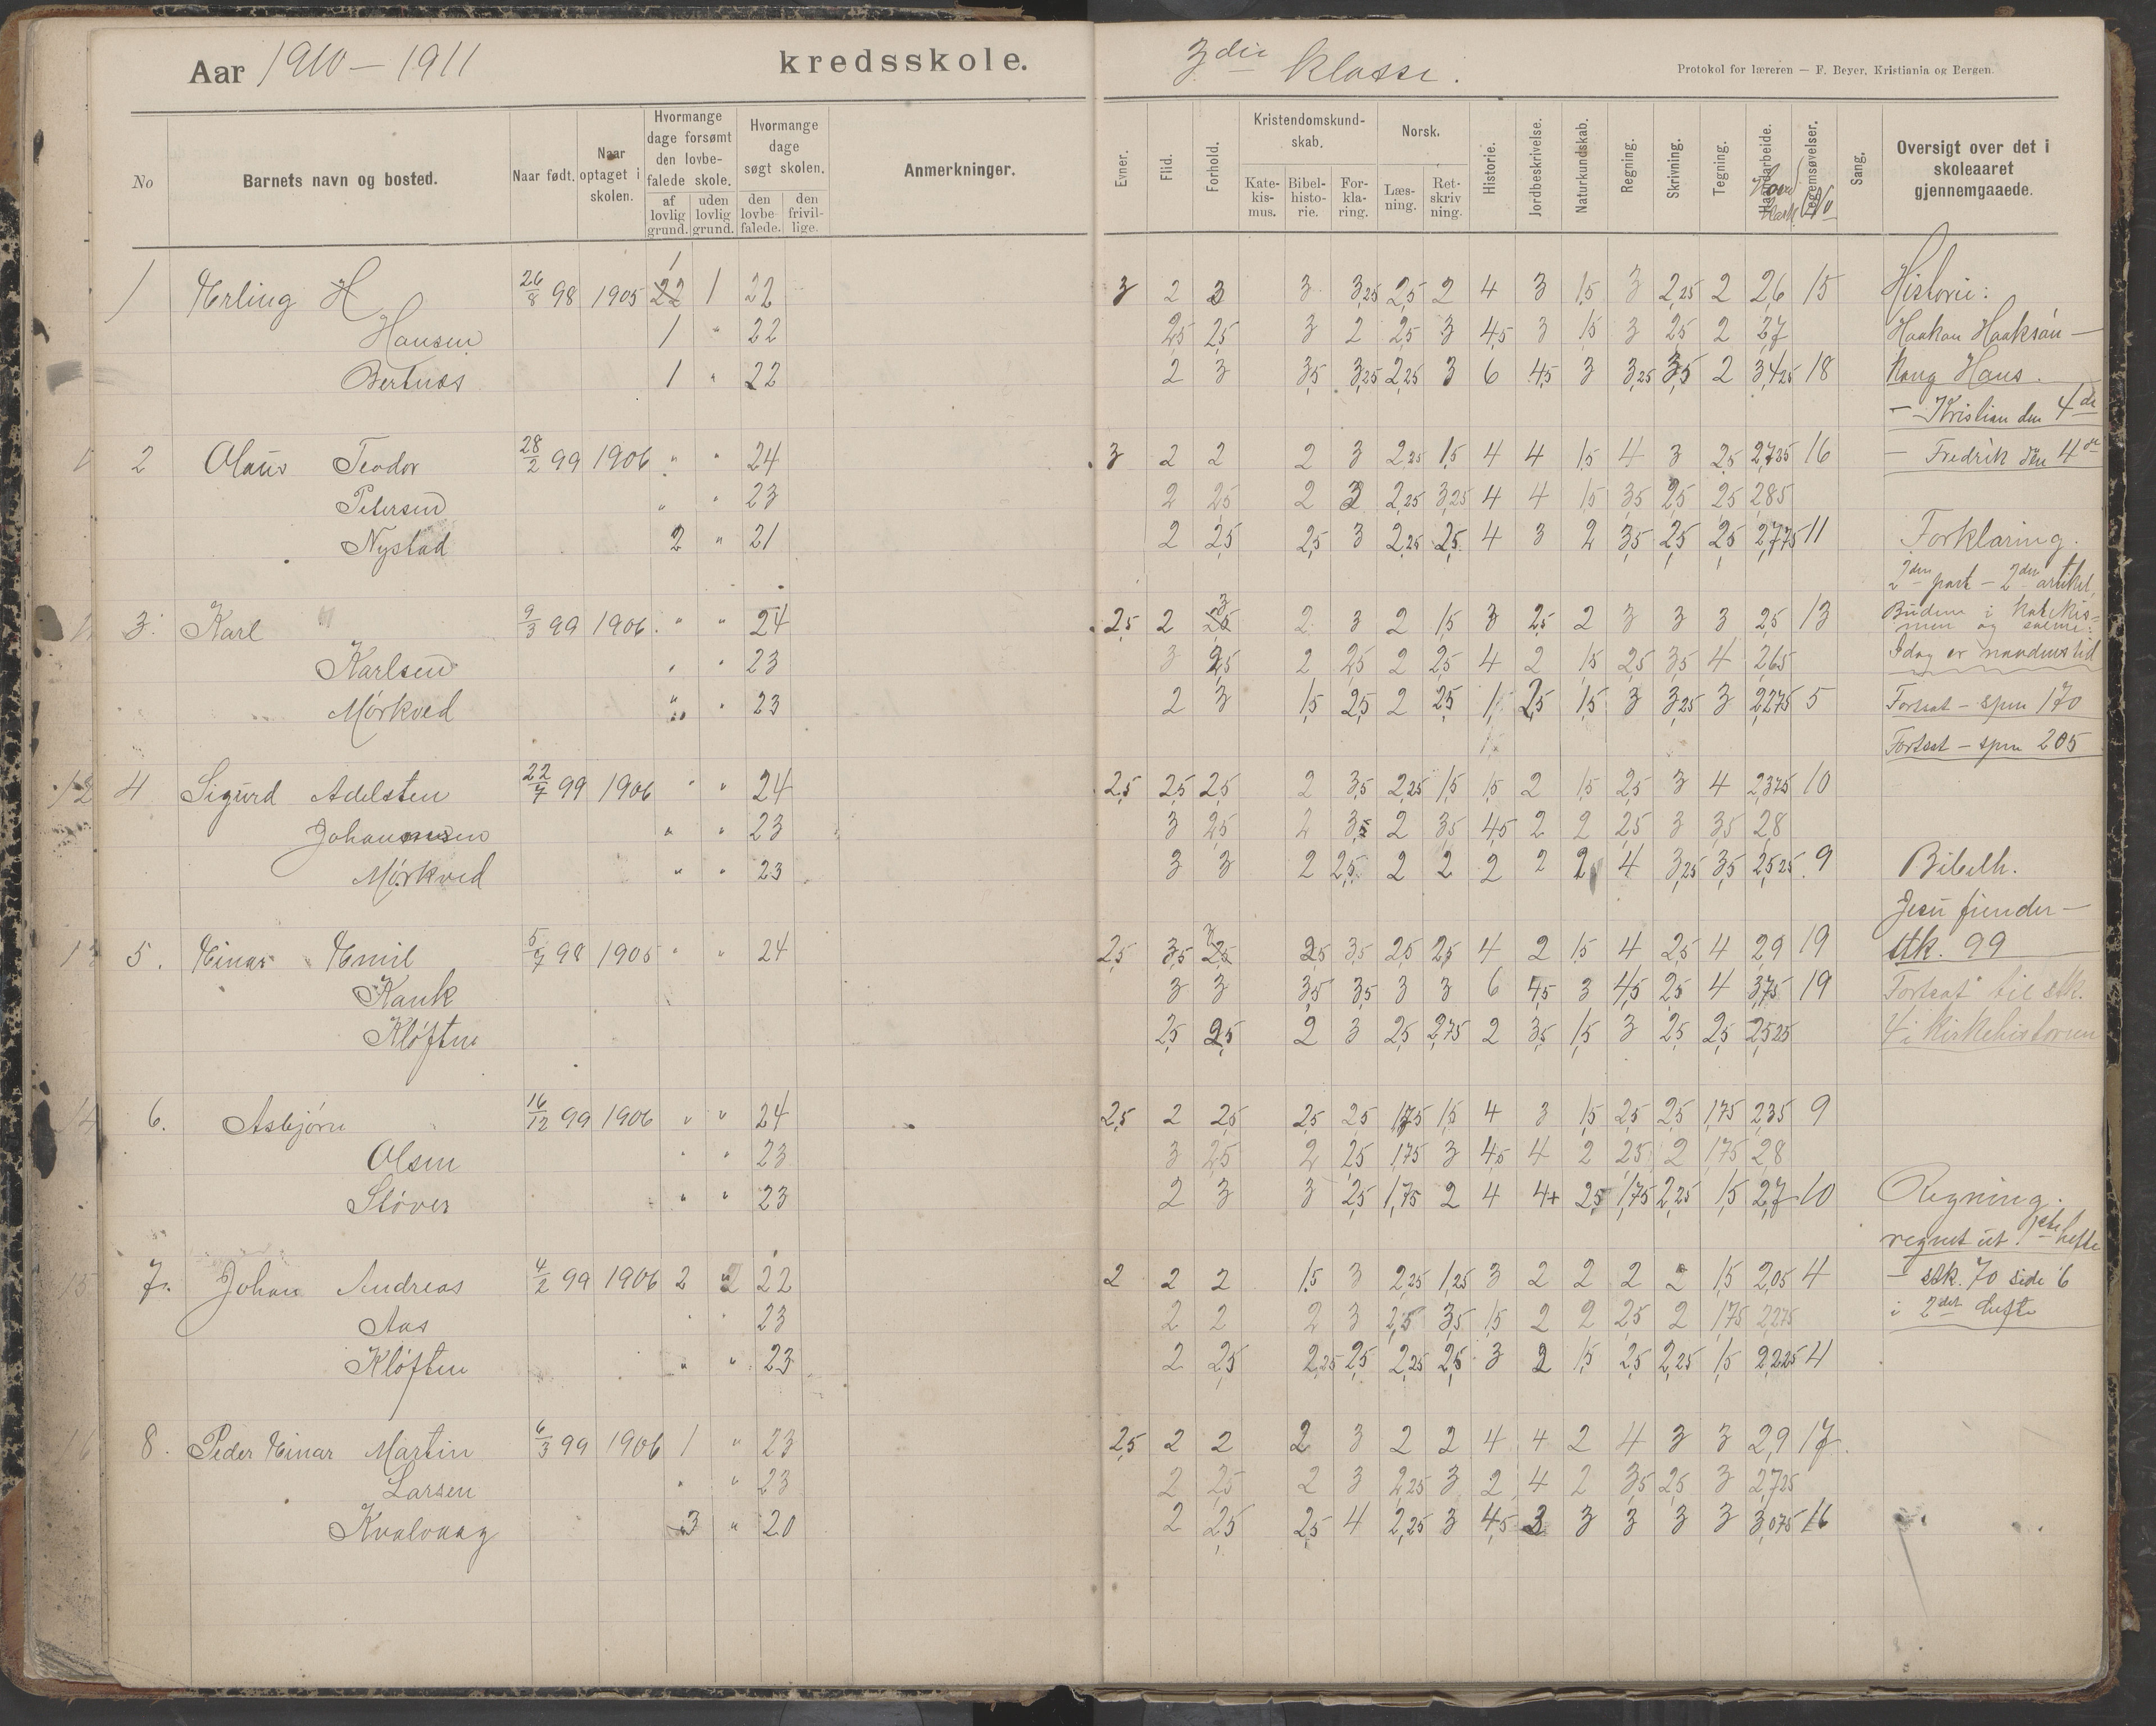 Aar 1910 — 1911 kredsskole. 3die klasse.
Protokol for læreren — F. Beyer, Kristiania og Bergen.
No
Barnets navn og bosted.
Naar født.
Naar optaget i skolen.
Hvormange dage forsømt den lovbefalede skole.
af lovlig grund.
uden lovlig grund.
Hvormange dage søgt skolen.
den lovbefalede.
den frivillige.
Anmerkninger.
Evner.
Flid.
Forhold.
Kristendomskundskab.
Katekismus.
Bibelhistorie.
Forklaring.
Norsk.
Læsning.
Retskrivning.
Historie.
Jordbeskrivelse.
Naturkundskab.
Regning.
Skrivning.
Tegning.
Haandarbeide.
Legemsøvelser.
Sang.
Oversigt over det i skoleaaret gjennemgaaede.
1 Erling H 26/8 98 1905 1 22 1 22 3 2 3 3 3,25 2,5 2 4 3 1,5 3 2,25 2 2,6 15
Hansen 1 " 22 2,5 2,5 3 2 2,5 3 4,5 3 1,5 3 2,5 2 2,7
Bertnes 1 " 22 2 3 3,5 3,25 2,25 3 6 4,5 3 3,25 3,5 2 3,425 18
2 Olaus Teodor 28/2 99 1906 " " 24 3 2 2 2 3 2,25 1,5 4 4 1,5 4 3 2,5 2,725 16
Petersen " " 23 2 2,5 2 3 2,25 3,25 4 4 1,5 3,5 2,5 2,5 2,85
Nystad 2 " 21 2 2,5 2,5 3 2,25 2,5 4 3 2 3,5 2,5 2,5 2,775 11
3. Karl 9/3 99 1906. " " 24 2,5 2 3 2,5 2 3 2 1,5 3 2,5 2 3 3 3 2,5 13
Karlsen " " 23 3 2,5 2 2,5 2 2,5 4 2 1,5 2,5 3,5 4 2,65
Mørkved " " 23 2 3 1,5 2,5 2 2,5 1, 2,5 1,5 3 3,25 3 2,275 5
4 Sigurd Adelsten 22/7 99 1906 " " 24 2,5 2,5 2,5 2 3,5 2,25 1,5 1,5 2 1,5 2,5 3 4 2,375 10
Johannesen " " 23 3 2,5 2 3,5 2 3,5 4,5 2 2 2,5 3 3,5 2,8
Mørkved " " 23 3 3 2 2,5 2 2 2 2 2 4 3,25 3,5 2,525 9
5. Einar Emil 5/7 98 1905 " " 24 2,5 3,5 3 2,5 2,5 3,5 2,5 2,5 4 2 1,5 4 2,5 4 2,9 19
Hauk 3 3 3,5 3,5 3 3 6 4,5 3 4,5 2,5 4 3,75 19
Kløften 2,5 2,5 2 3 2,5 2,75 2 3,5 1,5 3 2,5 2,5 2,525
6. Asbjørn 16/12 99 1906 " " 24 2,5 2 2,5 2,5 2,5 1,75 1,5 4 3 1,5 2,5 2,5 1,75 2,35 9
Olsen " " 23 3 2,5 2 2,5 1,75 3 4,5 4 2 2,5 2 1,75 2,8
Støver " " 23 2 3 3 2,5 1,75 2 4 4+ 2,5 1,75 2,25 1,5 2,7 10
7. Johan Andreas 4/2 99 1906 2 2 22 2 2 2 1,5 3 2,25 1,25 3 2 2 2 2 1,5 2,05 4
Aas " " 23 2 2 2 3 2,5 3,5 1,5 2 2 2,5 2 1,75 2,275
Kløften " " 23 2 2,5 2,25 2,5 2,25 2,5 3 2 1,5 2,5 2,25 1,5 2,225 4
8. Peder Einar Martin 6/3 99 1906 1 " 23 2,5 2 2 2 3 2 2 4 4 2 4 3 3 2,9 17
Larsen " " 23 2 2,5 2 3 2,25 3 2 4 2 3,5 2,5 3 2,725
Kvalvaag 3 " 20 2 2,5 2,5 4 2,25 3 4,5 3 3 3 3 3 3,075 16
Historie:
Haakon Haaksøn —
Kong Hans.
— Kristian den 4de
— Fredrik den 4de
Forklaring.
2den part — 2den artikel,
Budene i katekis=
men og salme:
Idag er naadens tid
Fortsat — spm 170
Fortsat — spm 205
Bibelh.
Jesu fiender —
stk. 99
Fortsat til stk.
4 i kirkehistorien
Regning.
regnet ut 1ste hefte
— stk. 70 side 6
i 2det hefte